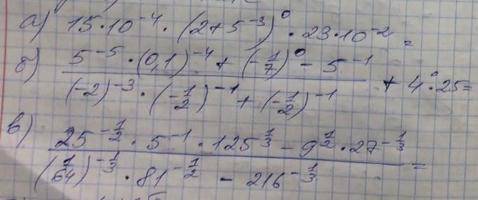 а) 15·10⁻⁴ · (2+5⁻³)⁰ · 23·10⁻² =
б)
5⁻⁵ · (0,1)⁻⁴ + (-1/7)⁰ - 5⁻¹
(-2)⁻³ · (-1/2)⁻¹ + (-1/2)⁻¹ + 4⁰·25=
в)
25^(-1/2) · 5⁻¹ · 125^(1/3) - 9^(1/2) · 27^(-1/3)
(1/64)^(-1/3) · 81^(-1/2) - 216^(-1/3) =